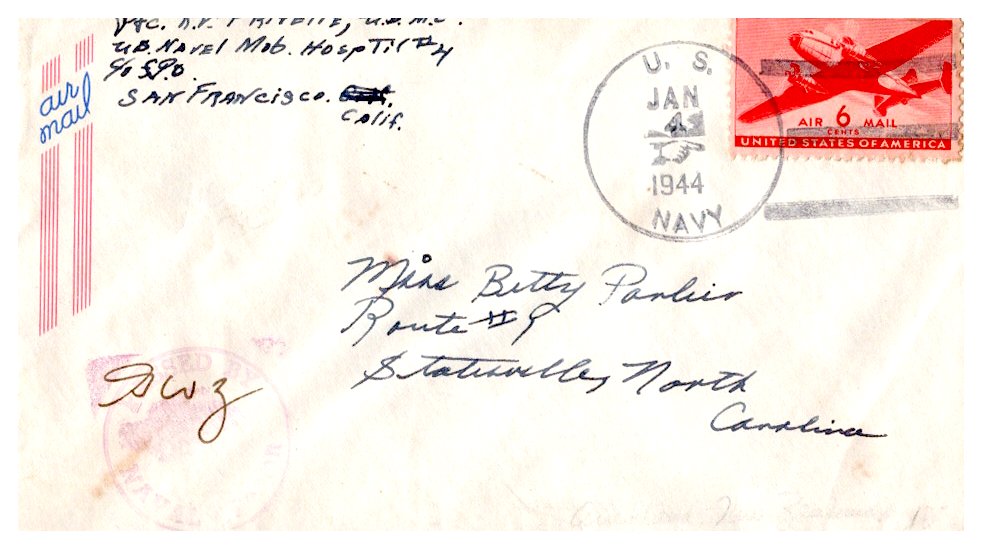 Pfc. R.V. PRIVETTE, U.S.M.C.
U.S. Navel Mob. Hosptil #4
c/o S.P.O.
SAN FRANCISCO. Calif.
air
mail
U. S.
JAN
4
1944
NAVY
AIR 6 MAIL
CENTS
UNITED STATES OF AMERICA
Miss Betty Parlier
Route #9
Statesville, North
Carolina
PASSED BY
NAVAL